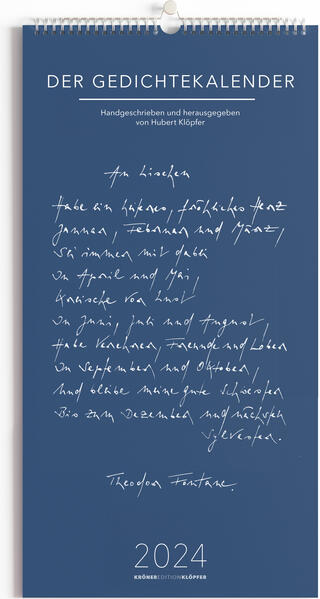 DER GEDICHTEKALENDER
Handgeschrieben und herausgegeben
von Hubert Klöpfer
An Lischen
Habe ein heiteres, fröhliches Herz
Januar, Februar und März,
Sei immer mit dabei
In April und Mai,
Kreische vor Lust
In Juni, Juli und August,
Habe Verehrer, Freunde und Lober
In September und Oktober,
Und bleibe meine gute Schwester
Bis zum Dezember und nächsten
Sylvester.
Theodor Fontane.
2024
KRÖNEREDITIONKLÖPFER